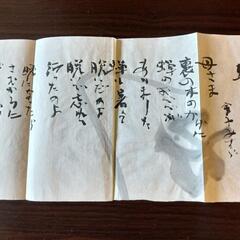 金子みすゞ
母さま
裏の木のかげに
蝉のおべべが
ありました
蝉も暑くて
脱いだのよ
脱いで忘れて
行ったのよ
晩になったら
さむかろに